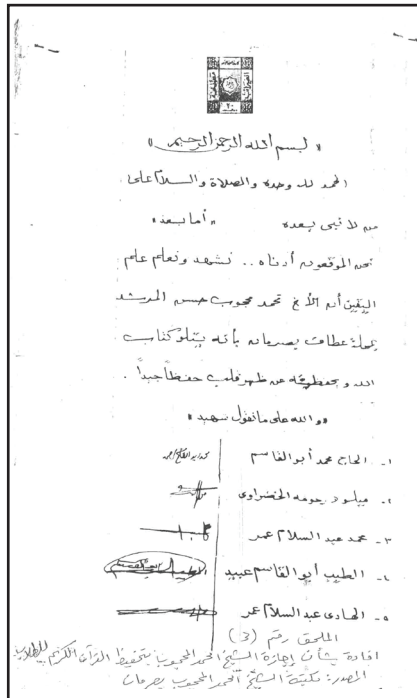 « بسم الله الرحمن الرحيم »
الحمد لله وحده والصلاة والسلام على
من لا نبي بعده « أما بعد »
نحن الموقعون أدناه .. نشهد ونعلم علم
اليقين أن الأخ محمد محجوب حسن المرشد
بمحلة عطاف بصرمان بأنه يتلو كتاب
الله ويحفظه عن ظهر قلب حفظاً جيداً .
« والله على ما نقول شهيد »
١- الحاج محمد أبوالقاسم
٢- ميلود رحومه الخضراوي
٣- محمد عبد السلام عمر
٤- الطيب أبوالقاسم عبيد
٥- الهادي عبد السلام عمر
الملحق رقم (3)
افادة بشأن إجازة الشيخ امحمد المحجوب بتحفيظ القرآن الكريم للطلاب
المصدر: مكتبة الشيخ امحمد المحجوب بصرمان